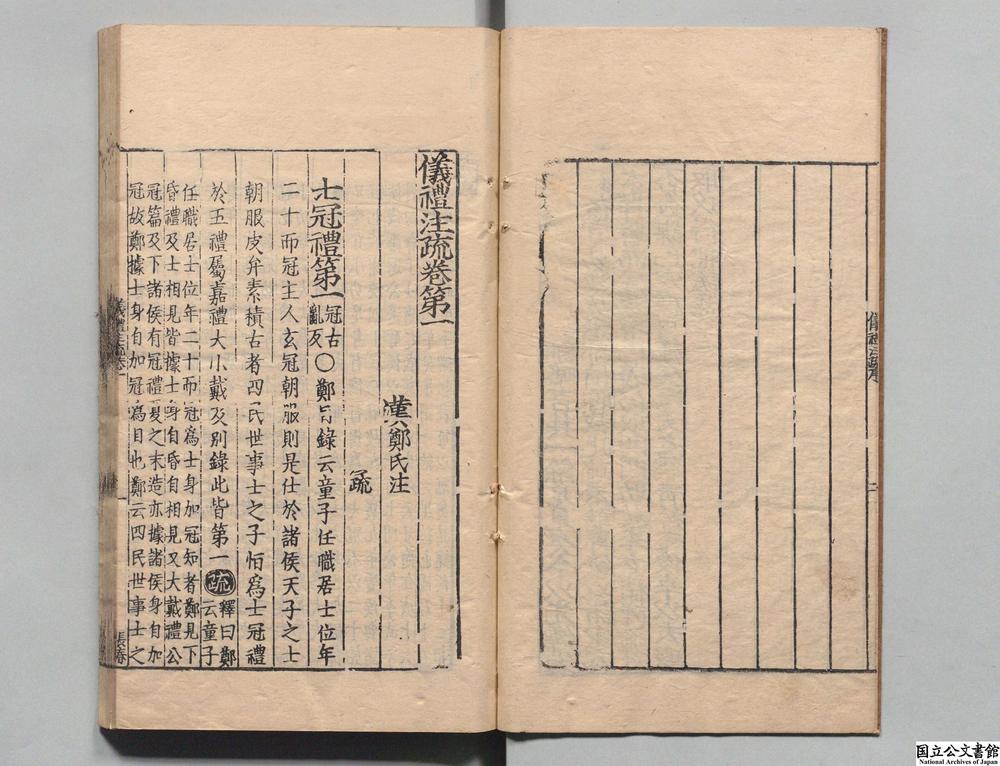 儀禮注疏卷第一
漢鄭氏注
疏
士冠禮第一冠古亂反〇鄭目錄云童子任職居士位年
二十而冠主人玄冠朝服則是仕於諸侯天子之士
朝服皮弁素積古者四民世事士之子恒爲士冠禮
於五禮屬嘉禮大小戴及別錄此皆第一疏釋曰鄭云童子
任職居士位年二十而冠爲士身加冠知者鄭見下
昏禮及士相見皆據士身自昏自相見又大戴禮公
冠篇及下諸侯有冠禮夏之末造亦據諸侯身自加
冠故鄭據士身自加冠爲目也鄭云四民世事士之
儀禮注疏卷一
一
長春
国立公文書館
National Archives of Japan